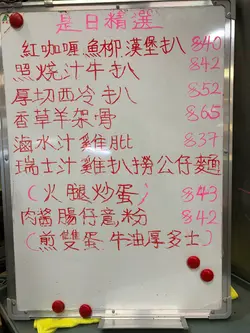 是日精選
紅咖喱魚柳漢堡扒 $40
照燒汁牛扒 $42
厚切西冷扒 $52
香草羊架骨 $65
滷水汁雞肶 $37
瑞士汁雞扒撈公仔麵
(火腿炒蛋) $43
肉醬腸仔意粉 $42
(煎雙蛋 牛油厚多士)